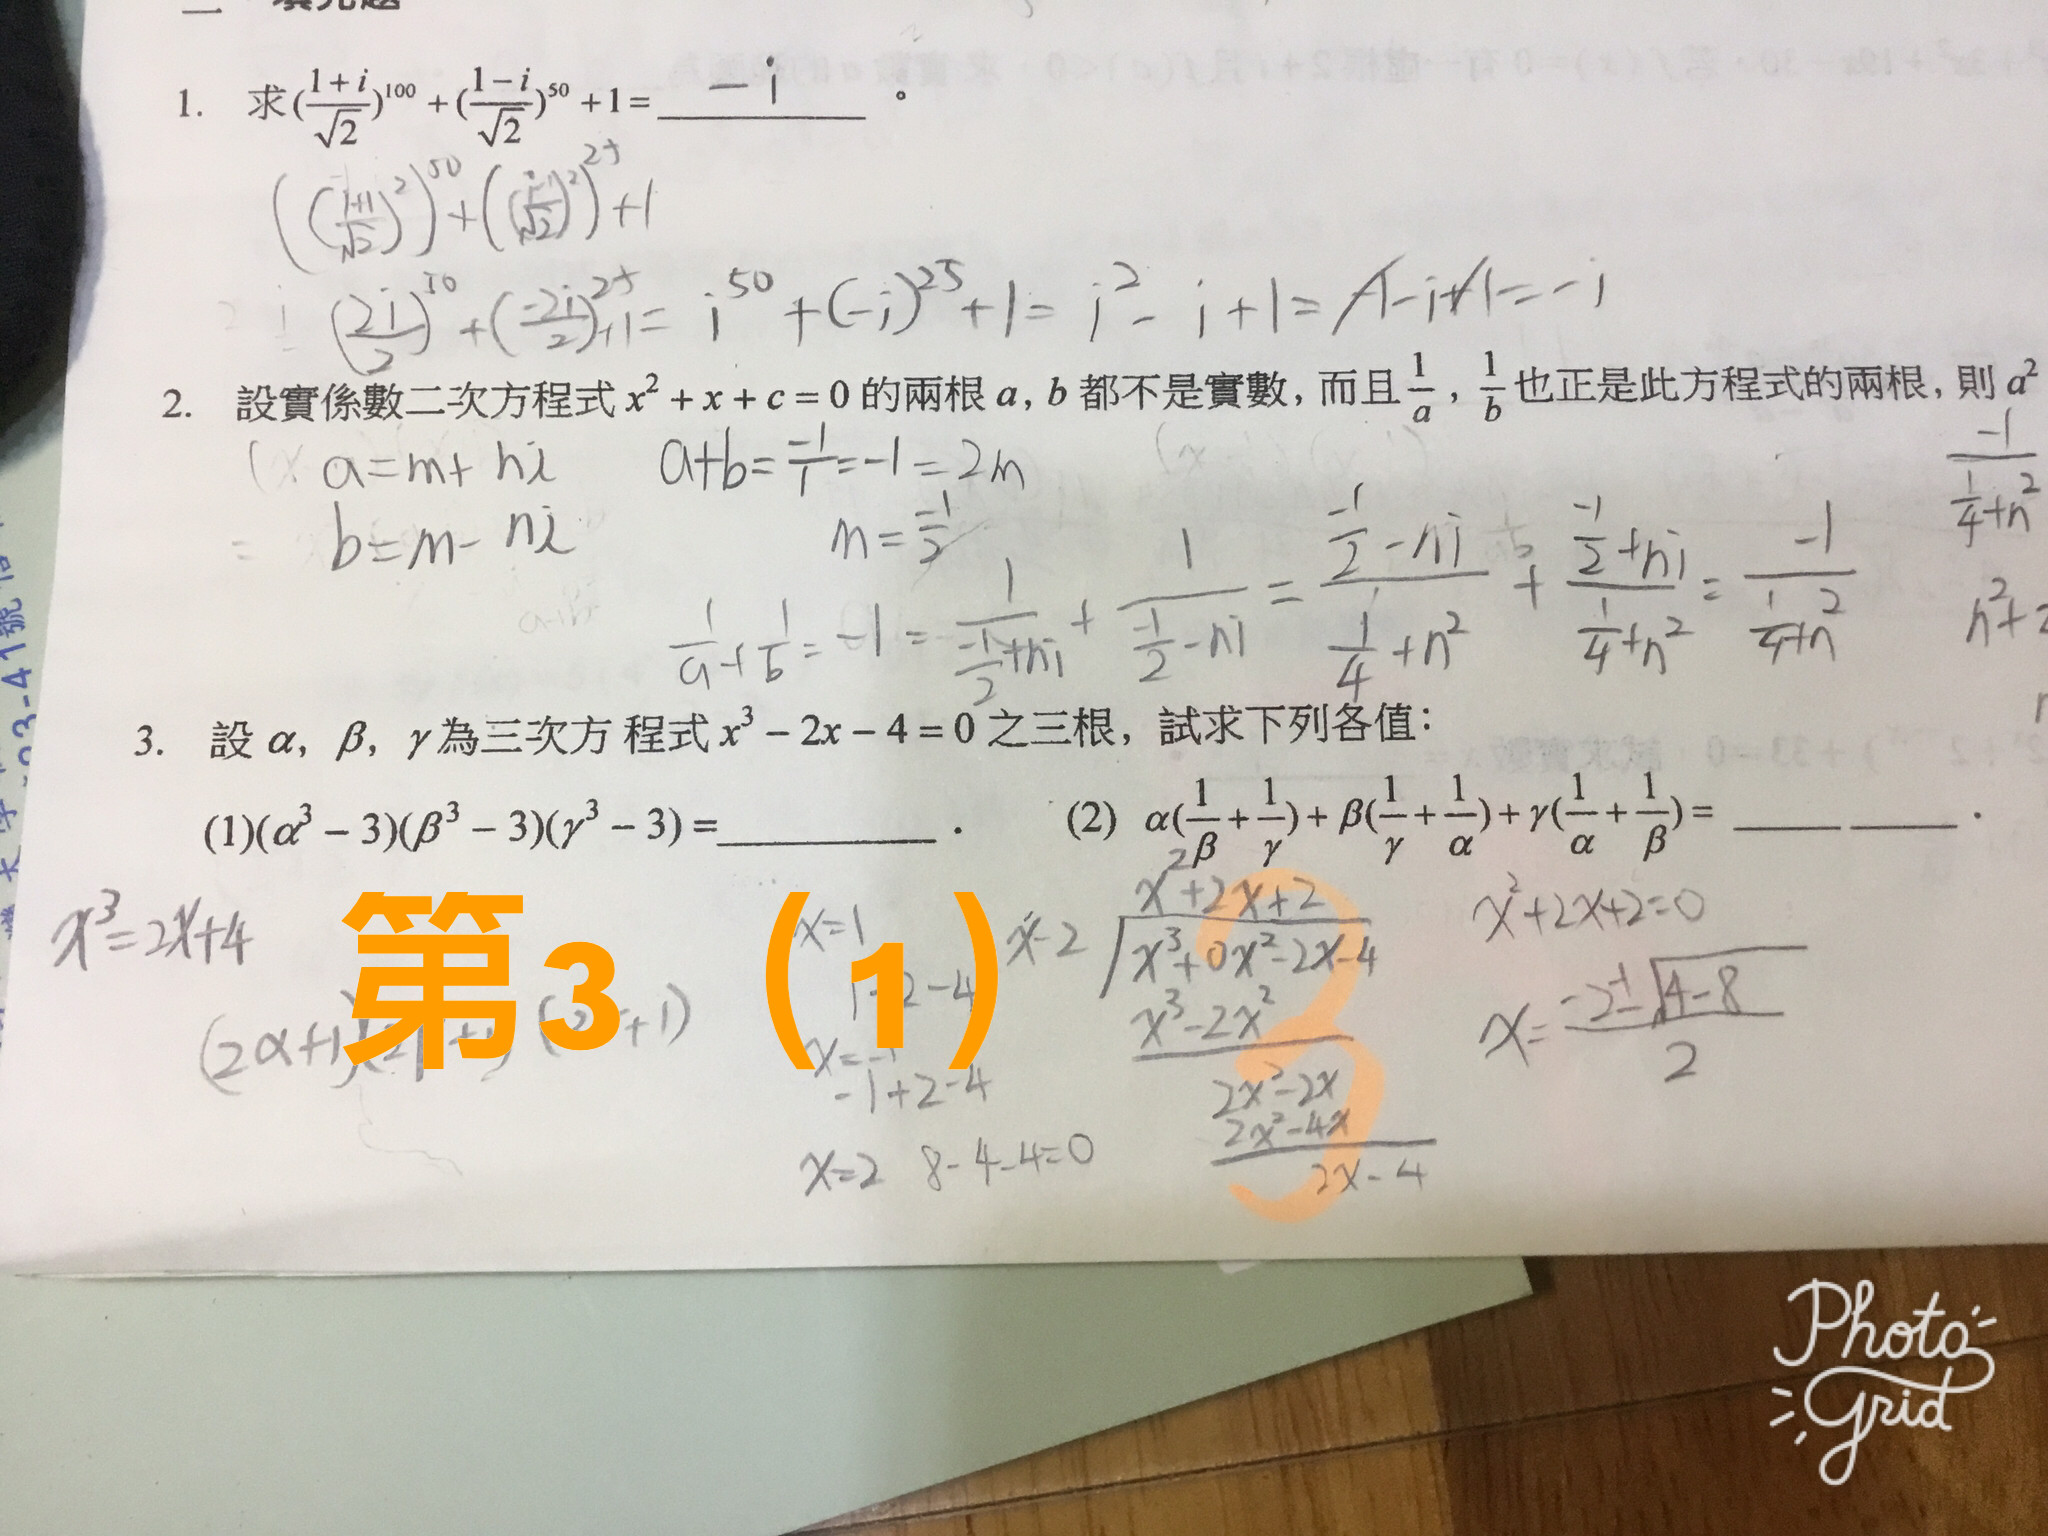 二 填充題
1. 求(\frac{1+i}{\sqrt{2}})^{100} + (\frac{1-i}{\sqrt{2}})^{50} + 1 = -i 。
((\frac{1+i}{\sqrt{2}})^2)^{50} + ((\frac{i-1}{\sqrt{2}})^2)^{25} + 1
(\frac{2i}{2})^{50} + (\frac{-2i}{2})^{25} + 1 = i^{50} + (-i)^{25} + 1 = i^2 - i + 1 = -1 - i + 1 = -i
2. 設實係數二次方程式 x^2 + x + c = 0 的兩根 a, b 都不是實數, 而且 \frac{1}{a}, \frac{1}{b} 也正是此方程式的兩根, 則 a^2
a = m + ni a+b = \frac{-1}{1} = -1 = 2m
b = m - ni m = \frac{-1}{2}
\frac{-1}{\frac{1}{4}+n^2}
\frac{1}{a} + \frac{1}{b} = -1 = \frac{1}{\frac{-1}{2}+ni} + \frac{1}{\frac{-1}{2}-ni} = \frac{\frac{-1}{2}-ni}{\frac{1}{4}+n^2} + \frac{\frac{-1}{2}+ni}{\frac{1}{4}+n^2} = \frac{-1}{\frac{1}{4}+n^2}
3. 設 α, β, γ 為三次方程式 x^3 − 2x − 4 = 0 之三根, 試求下列各值:
(1)(α^3 − 3)(β^3 − 3)(γ^3 − 3) = . (2) α(\frac{1}{β} + \frac{1}{γ}) + β(\frac{1}{γ} + \frac{1}{α}) + γ(\frac{1}{α} + \frac{1}{β}) = .
x^3 = 2x+4
第3（1）
3
(2α+1)
x=1
1-2-4
x=-1
-1+2-4
x=2 8-4-4=0
x^2+2x+2
x-2 x^3+0x^2-2x-4
x^3-2x^2
2x^2-2x
2x^2-4x
2x-4
x^2+2x+2=0
x = \frac{-2±\sqrt{4-8}}{2}
Photo
Grid